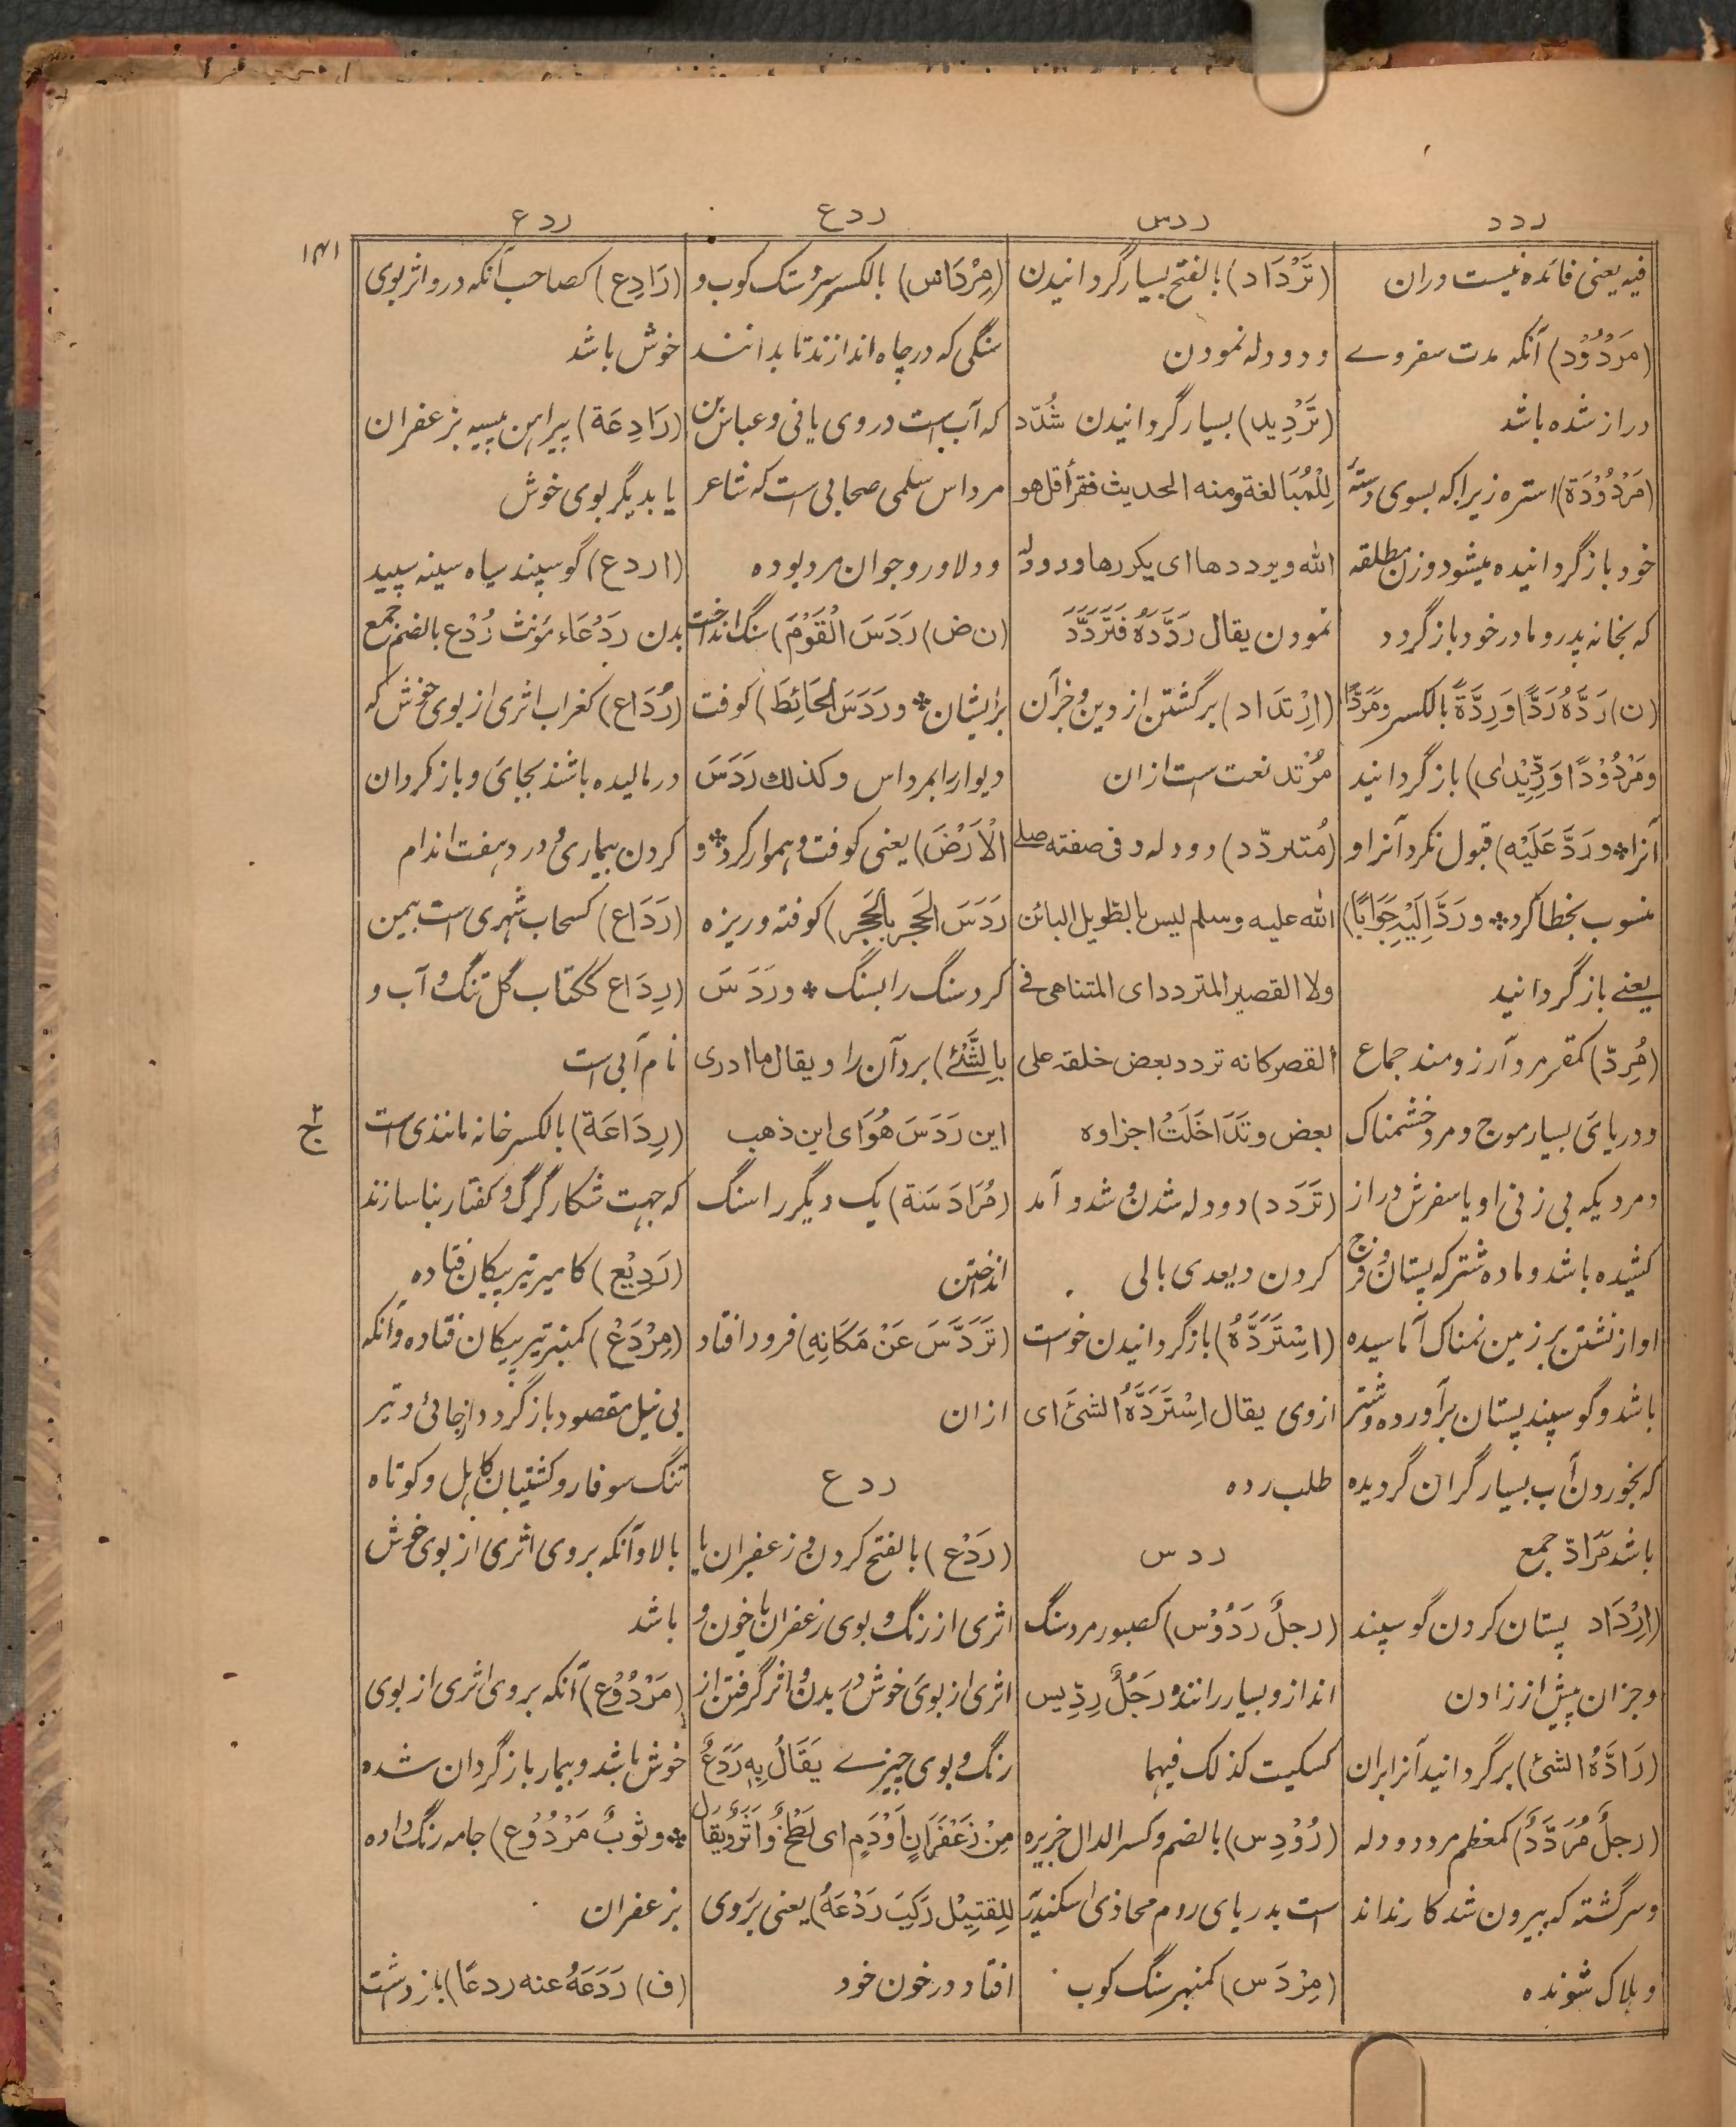 ردد
ردس
ردع
ردع
۱۴۱
فیه یعنی فائده نیست دران
(مَرْدُوْد) آنکه مدت سفر وے
دراز شده باشد
(مَرْدُوْدَة) استره زیراکه بسوی دستهٔ
خود باز گردانیده میشود و زن مطلقه
که بخانه پدر و مادر خود باز گردد
(ن) رَدَّهُ رَدًّا وَرِدَّةً بالکسر ومَرَدًّا
ومَرْدُوْدًا وَرِدِّيْدٰى) باز گردانید
آنرا * و رَدَّ عَلَيْه) قبول نکرد آنرا و
منسوب بخطا کرد * و رَدَّ اِلَيْهِ جَوَابًا)
یعنے باز گردانید
(مُرِدّ) کمقر مرد آرزومند جماع
و دریای بسیار موج و مرد خشمناک
و مردیکه بی زنی او یا سفرش دراز
کشیده باشد و ماده شتر که پستان و فرج
او از نشتن بر زمین نمناک آماسیده
باشد و گوسپند پستان برآورده و شتر
که بخوردن آب بسیار گران گردیده
باشد مَرَادّ جمع
(اِرْدَاد پستان کردن گوسپند
و جزان پیش از زادن
(رَادَّهُ الشئ) برگردانید آنرا بران
(رجلٌ مُرَدَّدٌ) کمعظم مرد دودله
و سرگشته که بیرون شد کار نداند
و هلاک شونده
(تَرْدَاد) بالفتح بسیار گردانیدن
و دودله نمودن
(تَرْدِيد) بسیار گردانیدن شُدّد
لِلْمُبَالغة ومنه الحدیث فقرأ قل هو
الله ویرددها ای یکررها و دودله
نمودن یقال رَدَّدَهُ فَتَرَدَّدَ
(اِرْتدَاد) برگشتن از دین و جزآن
مُرْتد نعت است ازان
(مُتردّد) دودله و فی صفته صلی
الله علیه وسلم لیس بالطویل البائن
ولا القصیر المتردد ای المتناهی فے
القصر کانه تردد بعض خلقه علی
بعض وتَدَاخَلَتْ اجزاوه
(تَرَدد) دودله شدن و شد و آمد
کردن ویعدی بالی
(اسْتَرَدَّهُ) باز گردانیدن خواست
ازوی یقال اِسْتَرَدَّهُ الشئَ ای
طلب رده
ردس
(رجلٌ رَدُوْس) کصبور مرد سنگ
انداز و بسیار رانندهٔ و رَجُلٌ رِدِّیس
کسکیت کذلک فیهما
(رُوْدِس) بالضم وکسر الدال جزیره
است بدریای روم محاذی اسکندریّه
(مِرْدَس) کمنبر سنگ کوب
(مِرْدَاس) بالکسر سرشک کوب و
سنگی که در چاه اندازند تا بدانند
که آب است دروی یا نی و عباس بن
مرداس سلمی صحابی است که شاعر
و دلاور و جوانمرد بوده
(ن ض) رَدَسَ الْقَوْمَ) سنگ انداخت
برایشان * و رَدَسَ الْحَائِطَ) کوفت
دیوار را بمرداس وکذلك رَدَسَ
الْاَرْضَ) یعنی کوفت و هموار کرد * و
رَدَسَ الْحَجر بِالْحَجَر) کوفته و ریزه
کرد سنگ را بسنگ * و رَدَسَ
بِالشَّئْ) برد آن را و یقال ما ادری
این رَدَسَ هُوَ ای این ذهب
(مُرَادَسَة) یک دیگر را سنگ
انداختن
(تَرَدَّسَ عَنْ مَكَانِهِ) فرود افتاد
ازان
ردع
(رَدْع) بالفتح کردن و زعفران یا
اثری از رنگ و بوی زعفران یا خون و
اثری از بوی خوش در بدن و اثر گرفتن از
رنگ و بوی چیزے يَقَالُ بِهٖ رَدْعٌ
مِنْ زَعْفَرَانٍ اَوْدَمٍ ای لَطْخٌ وَاَثَرٌ ويُقَالُ
لِلقتِیْل رَکِبَ رَدْعَهُ) یعنی بَرَوی
افتاد در خون خود
(رَادِع) کصاحب آنکه درو اثر بوی
خوش باشد
(رَادِعَة) پیراهن پیسه بزعفران
یا بدیگر بوی خوش
(اردع) گوسپند سیاه سینه سپید
بدن رَدْعَاء مونث رُدْع بالضم جمع
(رُدَاع) کغراب اثری از بوی خوش که
در مالیده باشند بجای و باز گردان
کردن بیماری و درد هفت اندام
(رَدَاع) کسحاب شهری است بیمن
(رِدَاع ککتاب گل تنگ و آب و
نام آبی است
(رِدَاعَة) بالکسر خانه مانندی است
که جهت شکار گرگ و کفتار بنا سازند
(رَدِيْع) کامیر تیر پیکان فتاده
(مِرْدَعْ) کمنبر تیر پیکان فتاده و آنکه
بی نیل مقصود باز گردد از جائی و تیر
تنگ سوفار و کشتیبان کاهل و کوتاه
بالا و آنکه بروی اثری از بوی خوش
باشد
(مَرْدُوْع) آنکه بروی اثری از بوی
خوش باشد و بیمار باز گردان شده
* و ثوبٌ مَرْدُوْع) جامه رنگ داده
بزعفران
(ف) رَدَعَهُ عنه ردعًا) باز داشت
ج